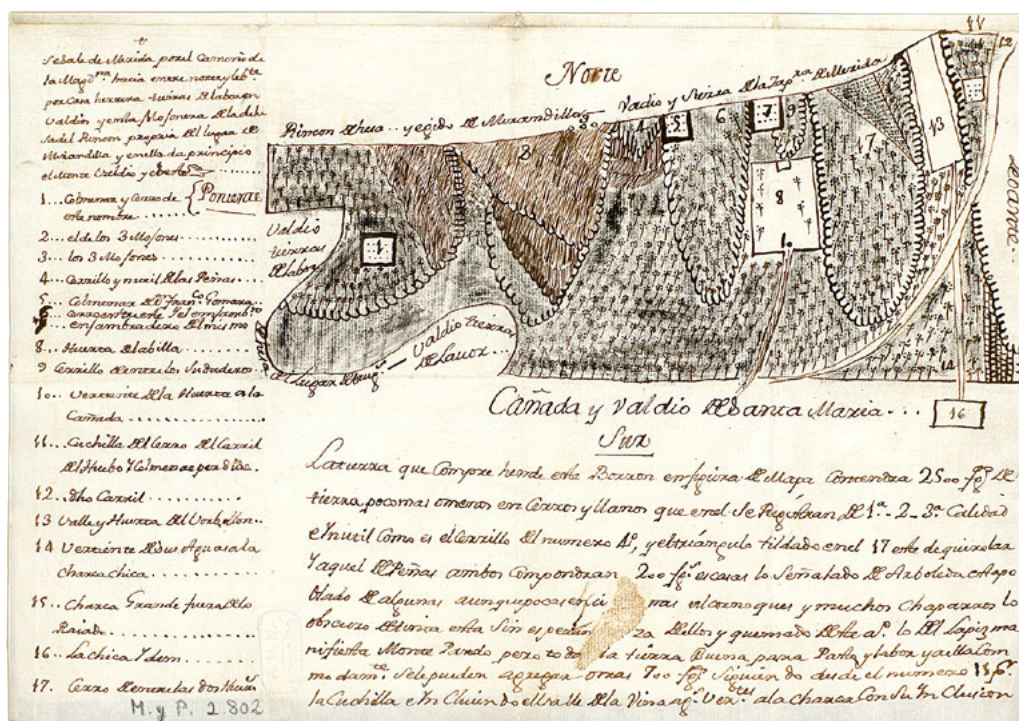 Se sale de Merida por el Camino de
la Magd.na hacia entre norte y leb.te
por Casa herrera tierras de labor en
Valdio y en la Mosonera de la dehe
sa del Rincon propria del lugar de
Mirandilla y en ella da principio
el Monte Valdio y
1... Colmenar y Cerro de
este nombre
Poniente
2 el de los 3 Mosones
3... los 3 Mosones
4... Cerrillo y de las Peñas
5... Colmenar de D.n Fran.co
en sambradero del mismo
8... Huerta de la billa
9 Cerrillo de entre los Sudaderos
10.. Vertiente de la Huerta a la
Cañada
11... Cuchilla del Cerro del Carril
del Huebo y Colmenar perdido.
12.. dho Carril
13 Valle y Huerta del
14 Vertiente de sus Aguas a la
charca chica
15.. Charca Grande fuera de lo
Raiado
16.. La chica Ydem
17. Cerro de entre las dos Huertas
M. y P. 2.802
Norte
Rincon y egido de Mirandilla
Valdio y Sierra de Merida
1.
3
4
5
6
7
9
17
13
12
8
1.
14
16
Valdio
tierras
de labor
Valdio tierra
de Lavor...
Cañada y Valdio de Santa Maria...
Sur
La tierra que Compre hende este Borron en figura de Mapa Contendra 2500 fg.s de
tierra poco mas o menos en Cerros y llanos que en el se Registran de 1.a - 2 - 3.a Calidad
e Inutil Como es el Cerrillo del numero 4.o, y el triangulo tildado en el 17 este de quirolas
Y aquel de Peñas ambos Compondran 200 fg.s escasas lo Señalado de Arboleda esta po
blado de algunas aunque pocas enci nas alcornoques y muchos Chaparros lo
obscuro de tinta esta Sin za de ellos y quemado de este a.o lo del Lapiz ma
nifiesta Monte Pardo, pero toda la tierra Buena para Pasto y labor y a ella Com
modam.te Se le pueden agregar otras 700 fg.s Siguiendo desde el numero 13
la Cuchilla e In Cluiendo el Valle de la Vina a la Charca Con Su In Clusion